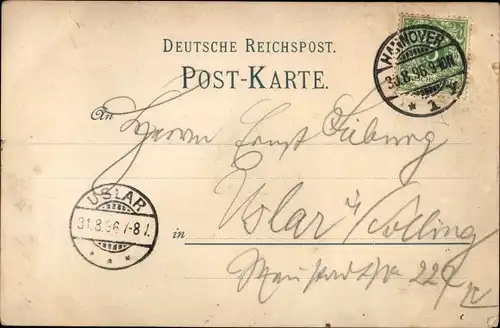 DEUTSCHE REICHSPOST.
POST-KARTE.
HANNOVER
30.8.96.9-10N.
* 1 y
An Herrn Ernst Freiburg
USLAR
31.8.96 7-8V.
* * *
in Uslar i/ Solling
Neustadtstr 229